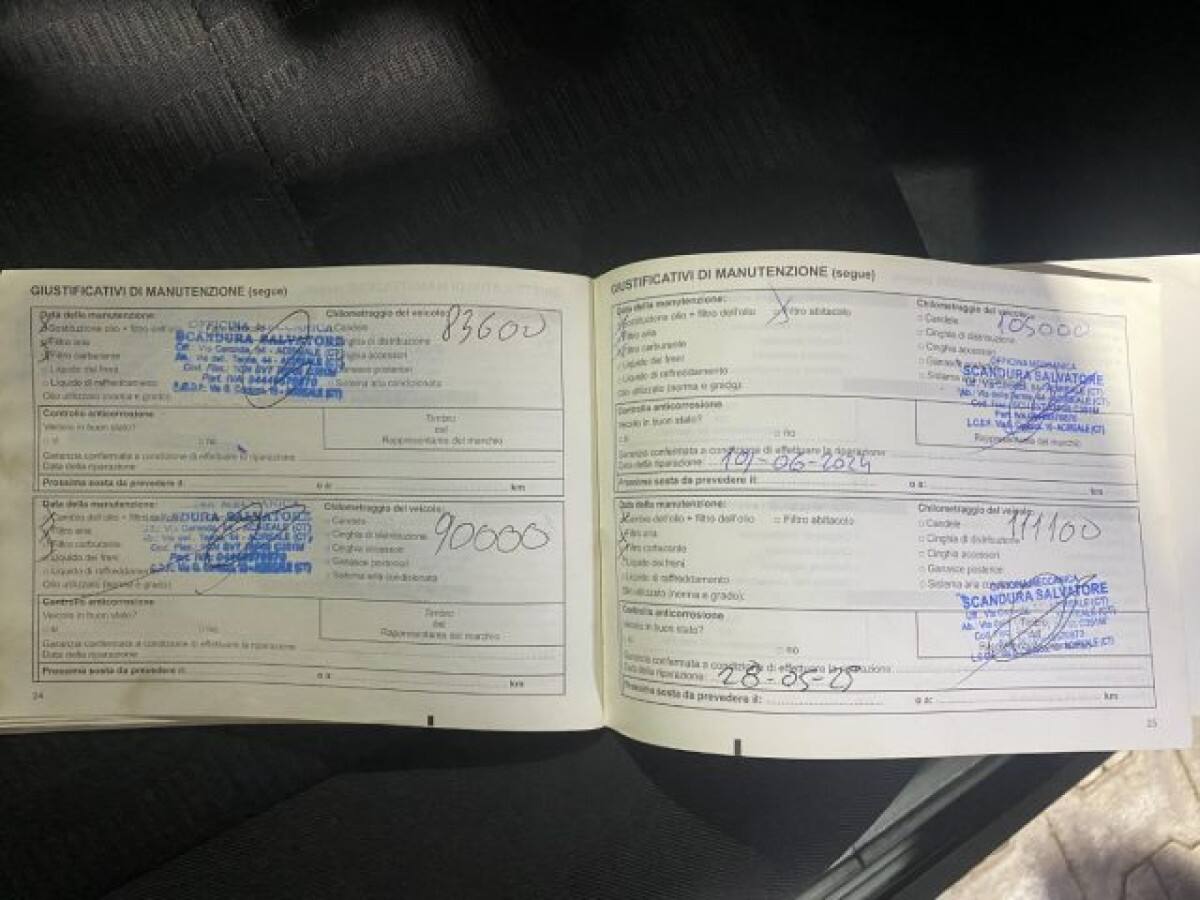 GIUSTIFICATIVI DI MANUTENZIONE (segue)
Data della manutenzione: Chilometraggio del veicolo: 83600
Sostituzione olio + filtro Candele
Filtro aria Cinghia di distribuzione
Filtro carburante Cinghia accessori
Liquido dei freni posteriori
Liquido di raffreddamento Sistema aria condizionata
Olio utilizzato (norma e grado):
OFFICINA MECCANICA
SCANDURA SALVATORE
Controllo anticorrosione
Veicolo in buon stato?
si no
Timbro
del
Rappresentante del marchio
Garanzia confermata a condizione di effettuare la riparazione
Data della riparazione:
Prossima sosta da prevedere il: o a: km
Data della manutenzione: Chilometraggio del veicolo: 90000
Cambio dell'olio + filtro Candele
Filtro aria Cinghia di distribuzione
Filtro carburante Cinghia accessori
Liquido dei freni Ganasce posteriori
Liquido di raffreddamento Sistema aria condizionata
Olio utilizzato (norma e grado):
SCANDURA SALVATORE
Controllo anticorrosione
Veicolo in buon stato?
si no
Timbro
del
Rappresentante del marchio
Garanzia confermata a condizione di effettuare la riparazione
Data della riparazione:
Prossima sosta da prevedere il: o a: km
24
GIUSTIFICATIVI DI MANUTENZIONE (segue)
Data della manutenzione: Chilometraggio del veicolo: 105000
Sostituzione olio + filtro dell'olio Filtro abitacolo Candele
Filtro aria Cinghia di distribuzione
Filtro carburante Cinghia accessori
Liquido dei freni Ganasce
Liquido di raffreddamento Sistema
Olio utilizzato (norma e grado):
OFFICINA MECCANICA
SCANDURA SALVATORE
Controllo anticorrosione
Veicolo in buon stato?
si no
Rappresentante del marchio
Garanzia confermata a condizione di effettuare la riparazione
Data della riparazione: 19-06-2024
Prossima sosta da prevedere il: o a: km
Data della manutenzione: Chilometraggio del veicolo: 111100
Cambio dell'olio + filtro dell'olio Filtro abitacolo Candele
Filtro aria Cinghia di distribuzione
Filtro carburante Cinghia accessori
Liquido dei freni Ganasce posteriori
Liquido di raffreddamento Sistema aria condizionata
Olio utilizzato (norma e grado):
OFFICINA MECCANICA
SCANDURA SALVATORE
Controllo anticorrosione
Veicolo in buon stato?
si no
Garanzia confermata a condizione di effettuare la riparazione
Data della riparazione: 28-05-25
Prossima sosta da prevedere il: o a: km
25